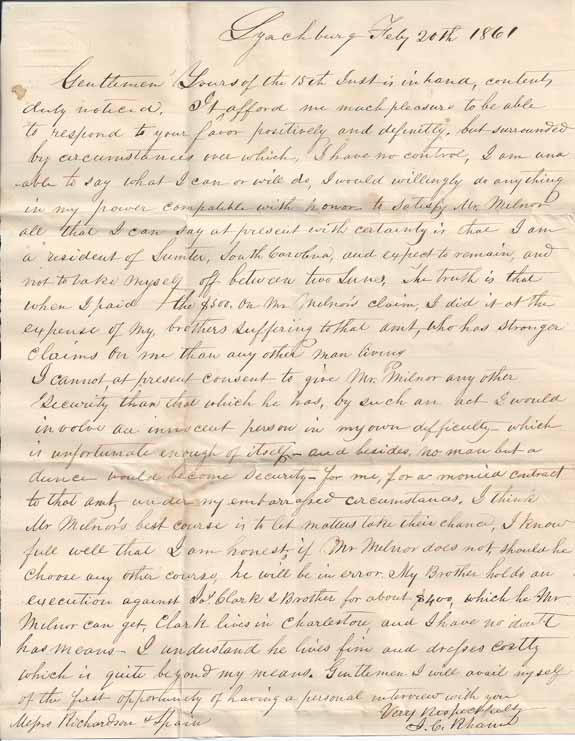 Lynchburg Feby 20th 1861
Gentlemen Yours of the 15th Inst is in hand, contents
duly noticed. It afford me much pleasure to be able
to respond to your favor positively and definitly, but surrounded
by circumstances over which, I have no control, I am una
-able to say what I can or will do, I would willingly do anything
in my power compatible with honor to satisfy Mr. Milnor
all that I can say at present with certainty is that I am
a resident of Sumter, South Carolina, and expect to remain, and
not to take myself off between two Suns, The truth is that
when I paid the $500. on Mr Milnor's claim, I did it at the
expense of my brothers suffering to that amt, who has stronger
claims on me than any other man living
I cannot, at present consent to give Mr. Milnor any other
Security than that which he has, by such an act I would
involve an innocent person in my own difficulty - which
is unfortunate enough of itself - and besides, no man but a
dunce would become Security - for me, for a monied contract
to that amt, under my embarrassed circumstances, I think
Mr Milnor's best course is to let matters take their chance, I know
full well that I am honest, if Mr Milnor does not, should he
choose any other course, he will be in error. My Brother holds an
execution against Jas Clark & Brother for about $400, which he Mr
Milnor can get, Clark lives in Charleston, and I have no doubt
has means - I understand he lives fine and dresses costly
which is quite beyond my means. Gentlemen I will avail myself
of the first opportunity of having a personal interview with you
Very Respectfully
Messrs Richardson & Spain
J. C. Rhame